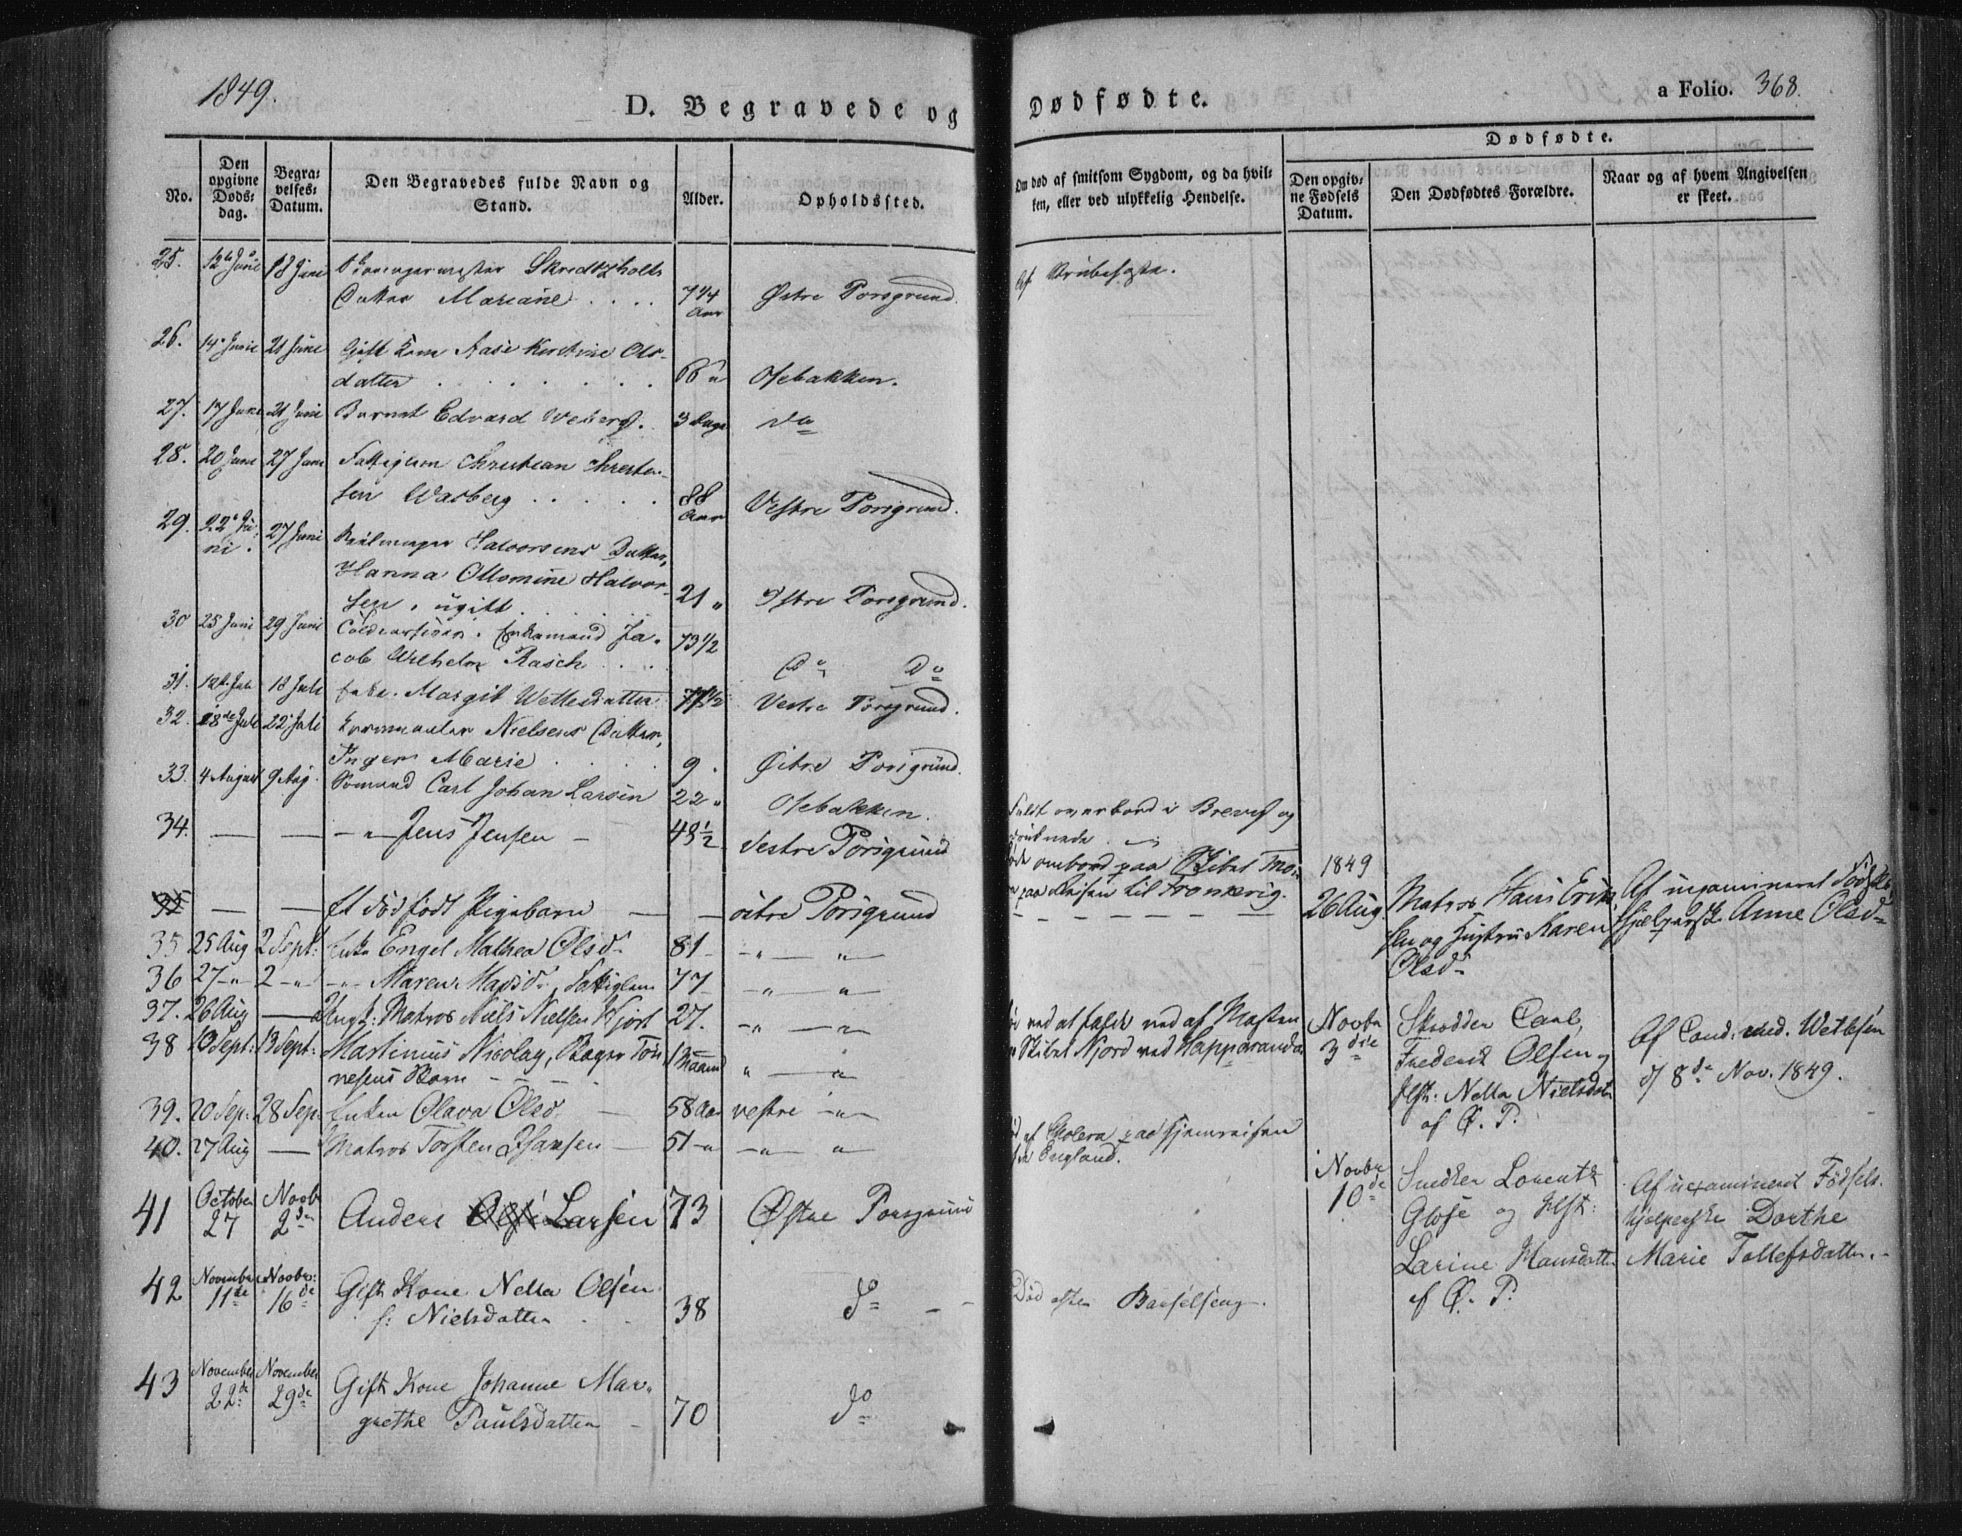 1849.
D. Begravede og Dødfødte.
a Folio. 368.
No.
Den opgivne Døds-dag.
Begra-velses-Datum.
Den Begravedes fulde Navn og Stand.
Alder.
Opholdssted.
Om død af smitsom Sygdom, og da hvil-ken, eller ved ulykkelig Hendelse.
Dødfødte.
Den opgiv-ne Fødsels Datum.
Den Dødfødtes Forældre.
Naar og af hvem Angivelsen er skeet.
25. 12te Juni 18 Juni
Datter Mariane . . . . 7 1/4 Aar Østre Porsgrund.
26. 14de Juni 21 Juni Gift Kone Aase Kirstine Ols-
datter . . . . . . . 66 " Osebakken.
27. 17 Juni 21 Juni Barnet Edvard Weberg. 3 Dage do
28. 20 Juni 27 Juni Fattiglem Christian Christen-
sen Warberg . . . . . 88 Aar Vestre Porsgrund.
29. 22de Ju-
ni. 27 Juni Halvorsens Datter,
Hanna Ottomine Halvor-
sen, ugift . . . . . 21 " Østre Porsgrund.
30 25 Juni 29 Juni Enkemand Ja-
cob Wilhelm Rasch . . . . 73 1/2 do do
31. 12te Juli 18 Juli Enke. Margit Wettesdatter 77 1/2 Vestre Porsgrund.
32. 18de Juli 22 Juli Nielsens Datter,
Inger Marie . . . . 9. Østre Porsgrund.
33. 4 August 9 Aug. Sømand Carl Johan Larsen 22 " Osebakken. Faldt overbord i Brevig og
druknede.
34. — — — " — Jens Jensen — 48 1/2 Vestre Porsgrund
ombord paa Skibet Tho-
paa Reisen til
35 — — Et dødfødt Pigebarn — — østre Porsgrund
1849
26 Aug. Matros Hans Erik-
sen og Hustru Karen
Olsd
Af uexamineret Fødsels-
hjelperske Anne Olsd
35 25 Aug 2 Sept: Enke Engel Mathea Olsd 81 — " — "
36 27 — " 2 — " — " — Maren Madsd, Fattiglem 77 — " — "
37. 26 Aug — Ungk: Matros Niels Nielsen Hjort 27. — " — "
ved at falde ned af Masten
Skibet Njord ved Happaranda
38 10 Sept: 13 Sept: Martinius Nicolay, Bager Tøn-
nesens Barn — — — 1 Maaned " — "
Novbr
3die Skrædder Carl
Frederik Olsen og
Hst: Nella Nielsdatter
af Ø. P.
Af Cand. med. Wetlesen
d/ 8de Nov. 1849.
39. 20 Sep: 28 Sep. Enken Olava Olsd. — 58 Aar vestre — " —
40. 27 Aug — Matros Torsten Hansen — 51 — " — " — "
af Cholera paa Hjemreisen
fra England.
Novbr
10de Smeden Lorentz
Glose og Hst:
Larine Hansdatter
af Ø. P.
Af uexamineret Fødsels-
hjelperske Dorthe
Marie Tollefsdatter.
41 October 27 Novb 2den Anders Larsen 73 Østre Porsgrund
42 November 11te Novbr: 16de Gift Kone Nella Olsen
f: Nielsdatter . . 38 do — —
Død efter Barselseng.
43 November 22de November 29de Gift Kone Johanne Mar-
grethe Paulsdatter — 70 do